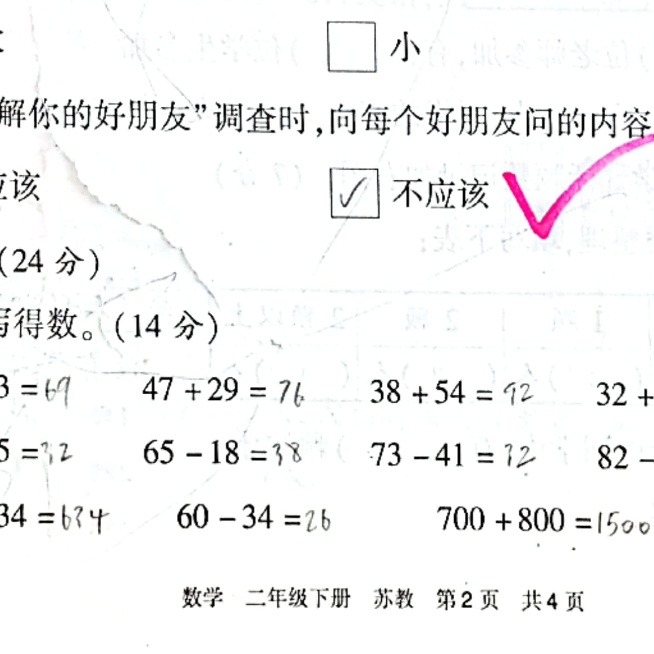 小
解你的好朋友”调查时,向每个好朋友问的内容
应该 ✓ 不应该
(24 分)
写得数。(14 分)
3 = 69 47 + 29 = 76 38 + 54 = 92 32 +
5 = 32 65 - 18 = 38 73 - 41 = 32 82 -
34 = 634 60 - 34 = 26 700 + 800 = 1500
数学 二年级下册 苏教 第2页 共4页